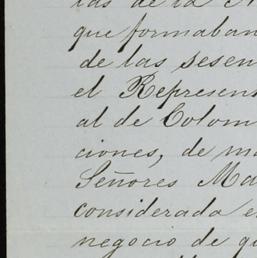 las de la N
que formaban
de las sesen
el Represen
al de Colom
ciones, de ma
Señores Ma
considerada e
negocio de qu